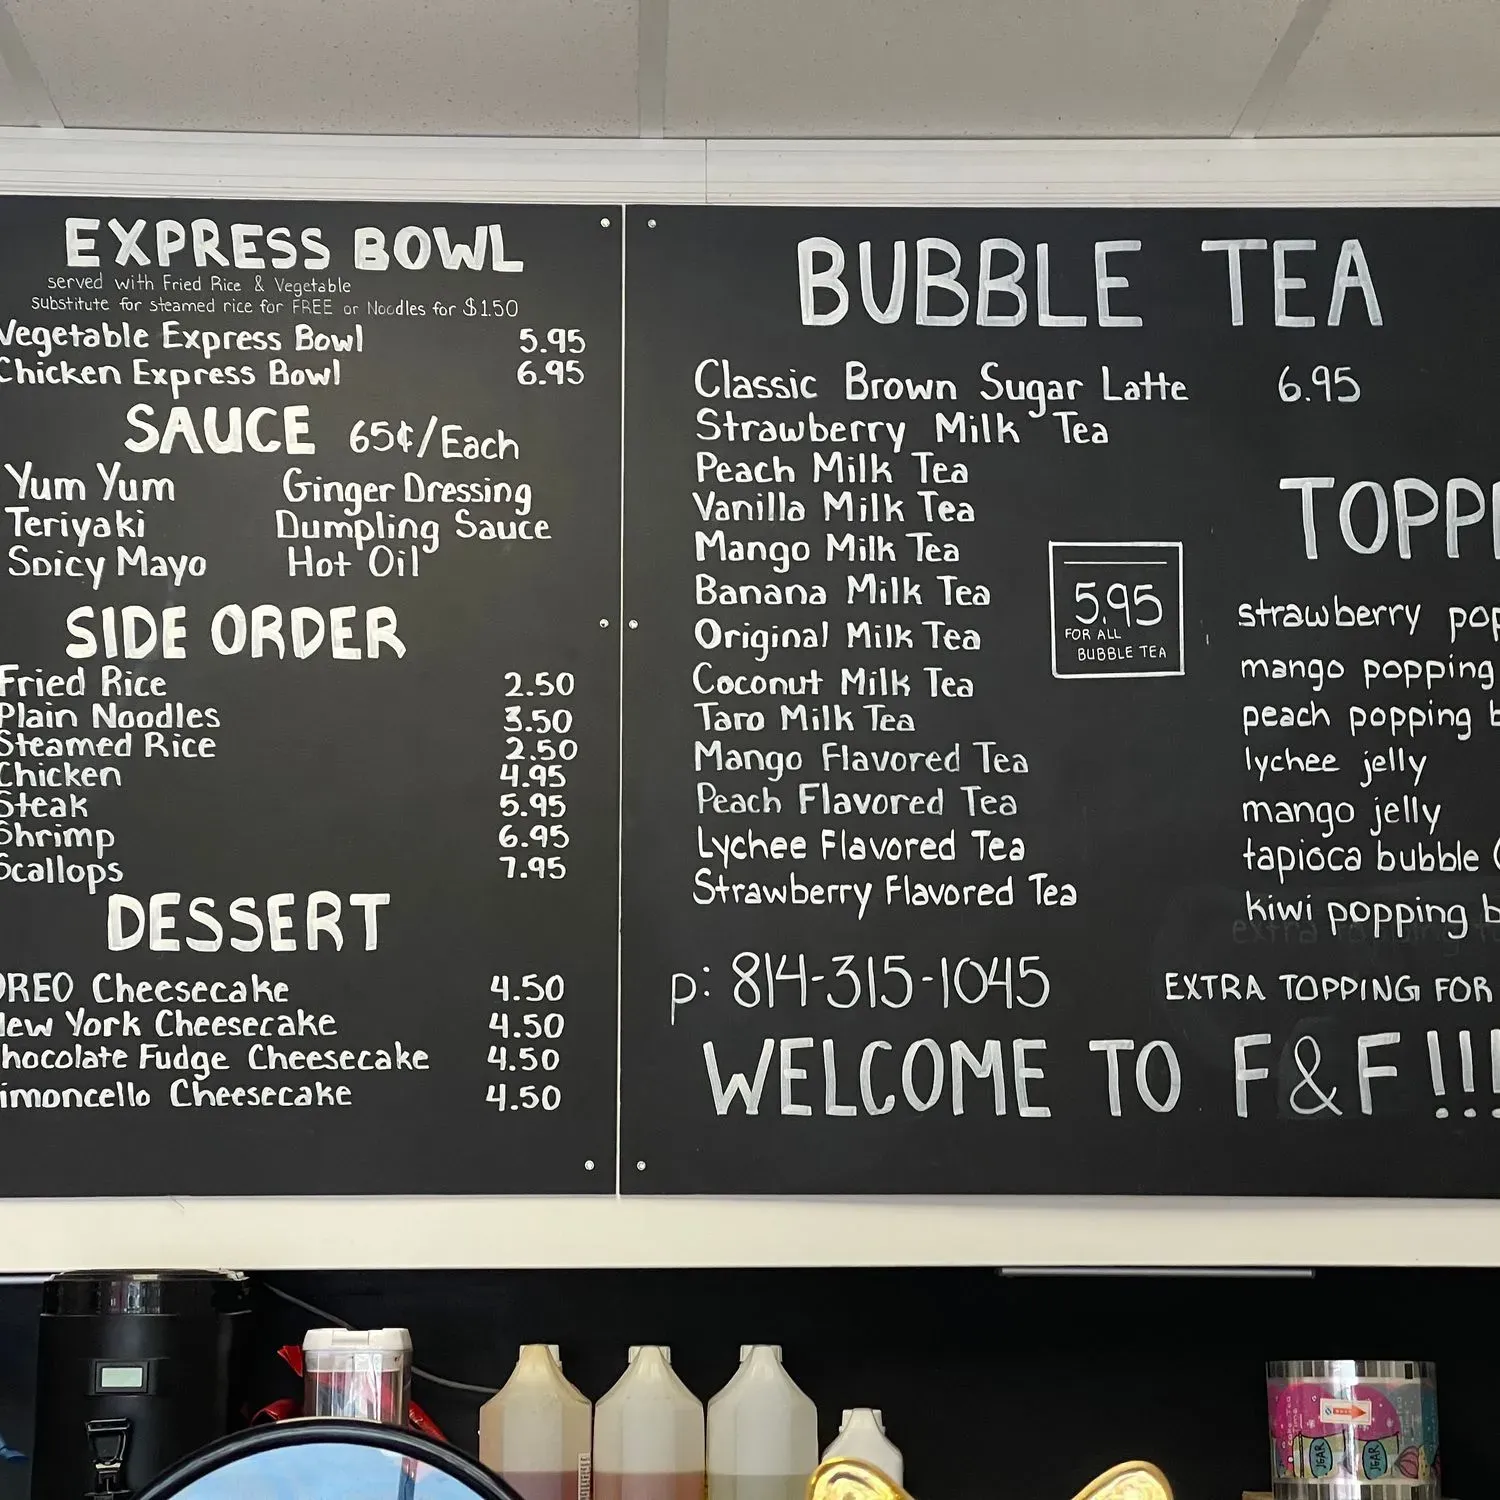 EXPRESS BOWL
served with Fried Rice & Vegetable
substitute for steamed rice for FREE or Noodles for $1.50
Vegetable Express Bowl 5.95
Chicken Express Bowl 6.95
SAUCE 65¢/Each
Yum Yum Ginger Dressing
Teriyaki Dumpling Sauce
Spicy Mayo Hot Oil
SIDE ORDER
Fried Rice 2.50
Plain Noodles 3.50
Steamed Rice 2.50
Chicken 4.95
Steak 5.95
Shrimp 6.95
Scallops 7.95
DESSERT
OREO Cheesecake 4.50
New York Cheesecake 4.50
hocolate Fudge Cheesecake 4.50
imoncello Cheesecake 4.50
BUBBLE TEA
Classic Brown Sugar Latte 6.95
Strawberry Milk Tea
Peach Milk Tea
Vanilla Milk Tea
Mango Milk Tea
Banana Milk Tea
Original Milk Tea
Coconut Milk Tea
Taro Milk Tea
Mango Flavored Tea
Peach Flavored Tea
Lychee Flavored Tea
Strawberry Flavored Tea
5.95
FOR ALL
BUBBLE TEA
TOPP
strawberry pop
mango popping
peach popping b
lychee jelly
mango jelly
tapioca bubble
kiwi popping b
EXTRA TOPPING FOR
p: 814-315-1045
WELCOME TO F&F!!!
JEAR JEAR